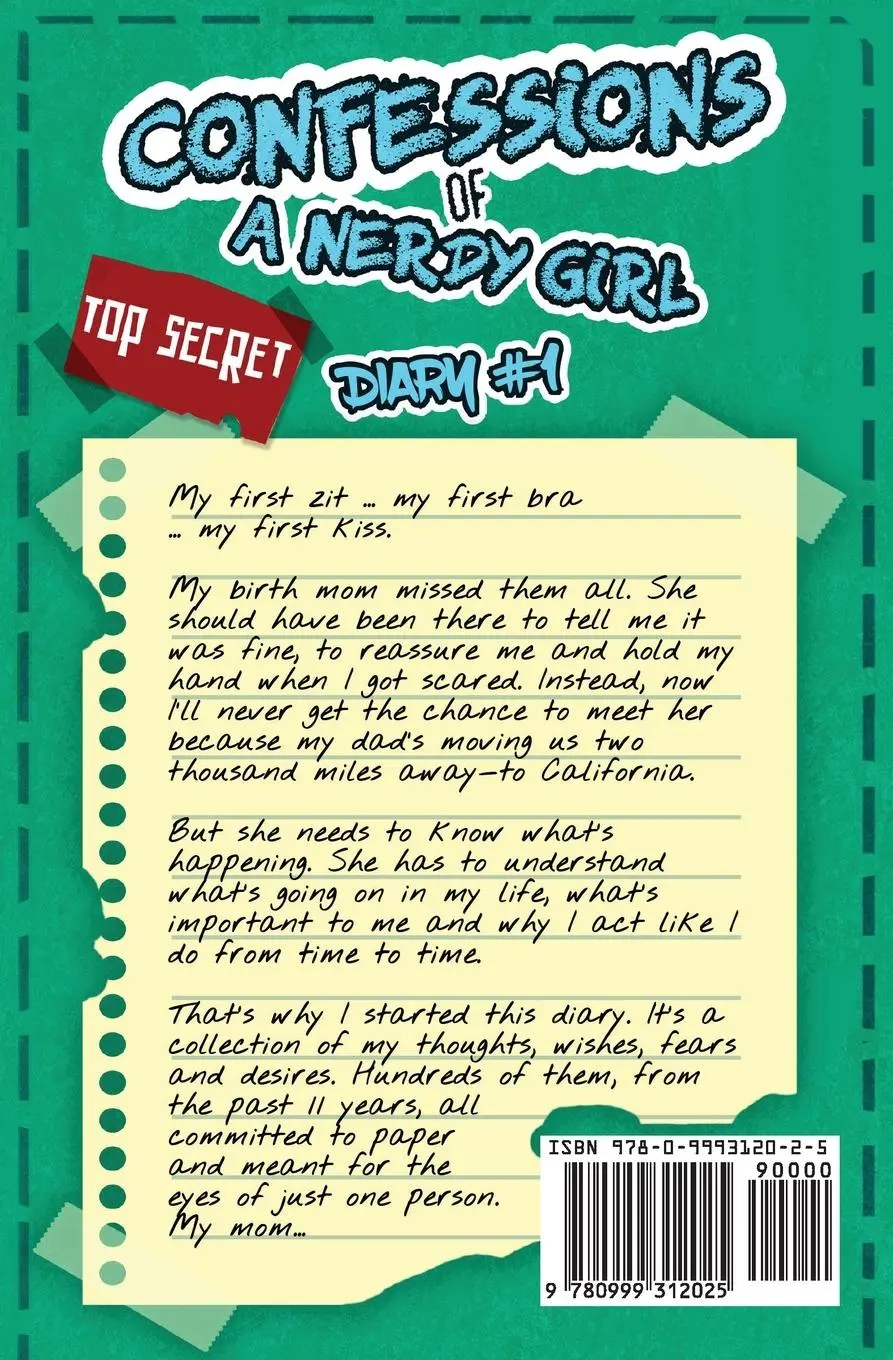 CONFESSIONS
OF
A NERDY GIRL
TOP SECRET
DIARY #1
My first zit ... my first bra
... my first kiss.
My birth mom missed them all. She
should have been there to tell me it
was fine, to reassure me and hold my
hand when I got scared. Instead, now
I'll never get the chance to meet her
because my dad's moving us two
thousand miles away—to California.
But she needs to know what's
happening. She has to understand
what's going on in my life, what's
important to me and why I act like I
do from time to time.
That's why I started this diary. It's a
collection of my thoughts, wishes, fears
and desires. Hundreds of them, from
the past 11 years, all
committed to paper
and meant for the
eyes of just one person.
My mom...
ISBN 978-0-9993120-2-5
90000
9 780999 312025